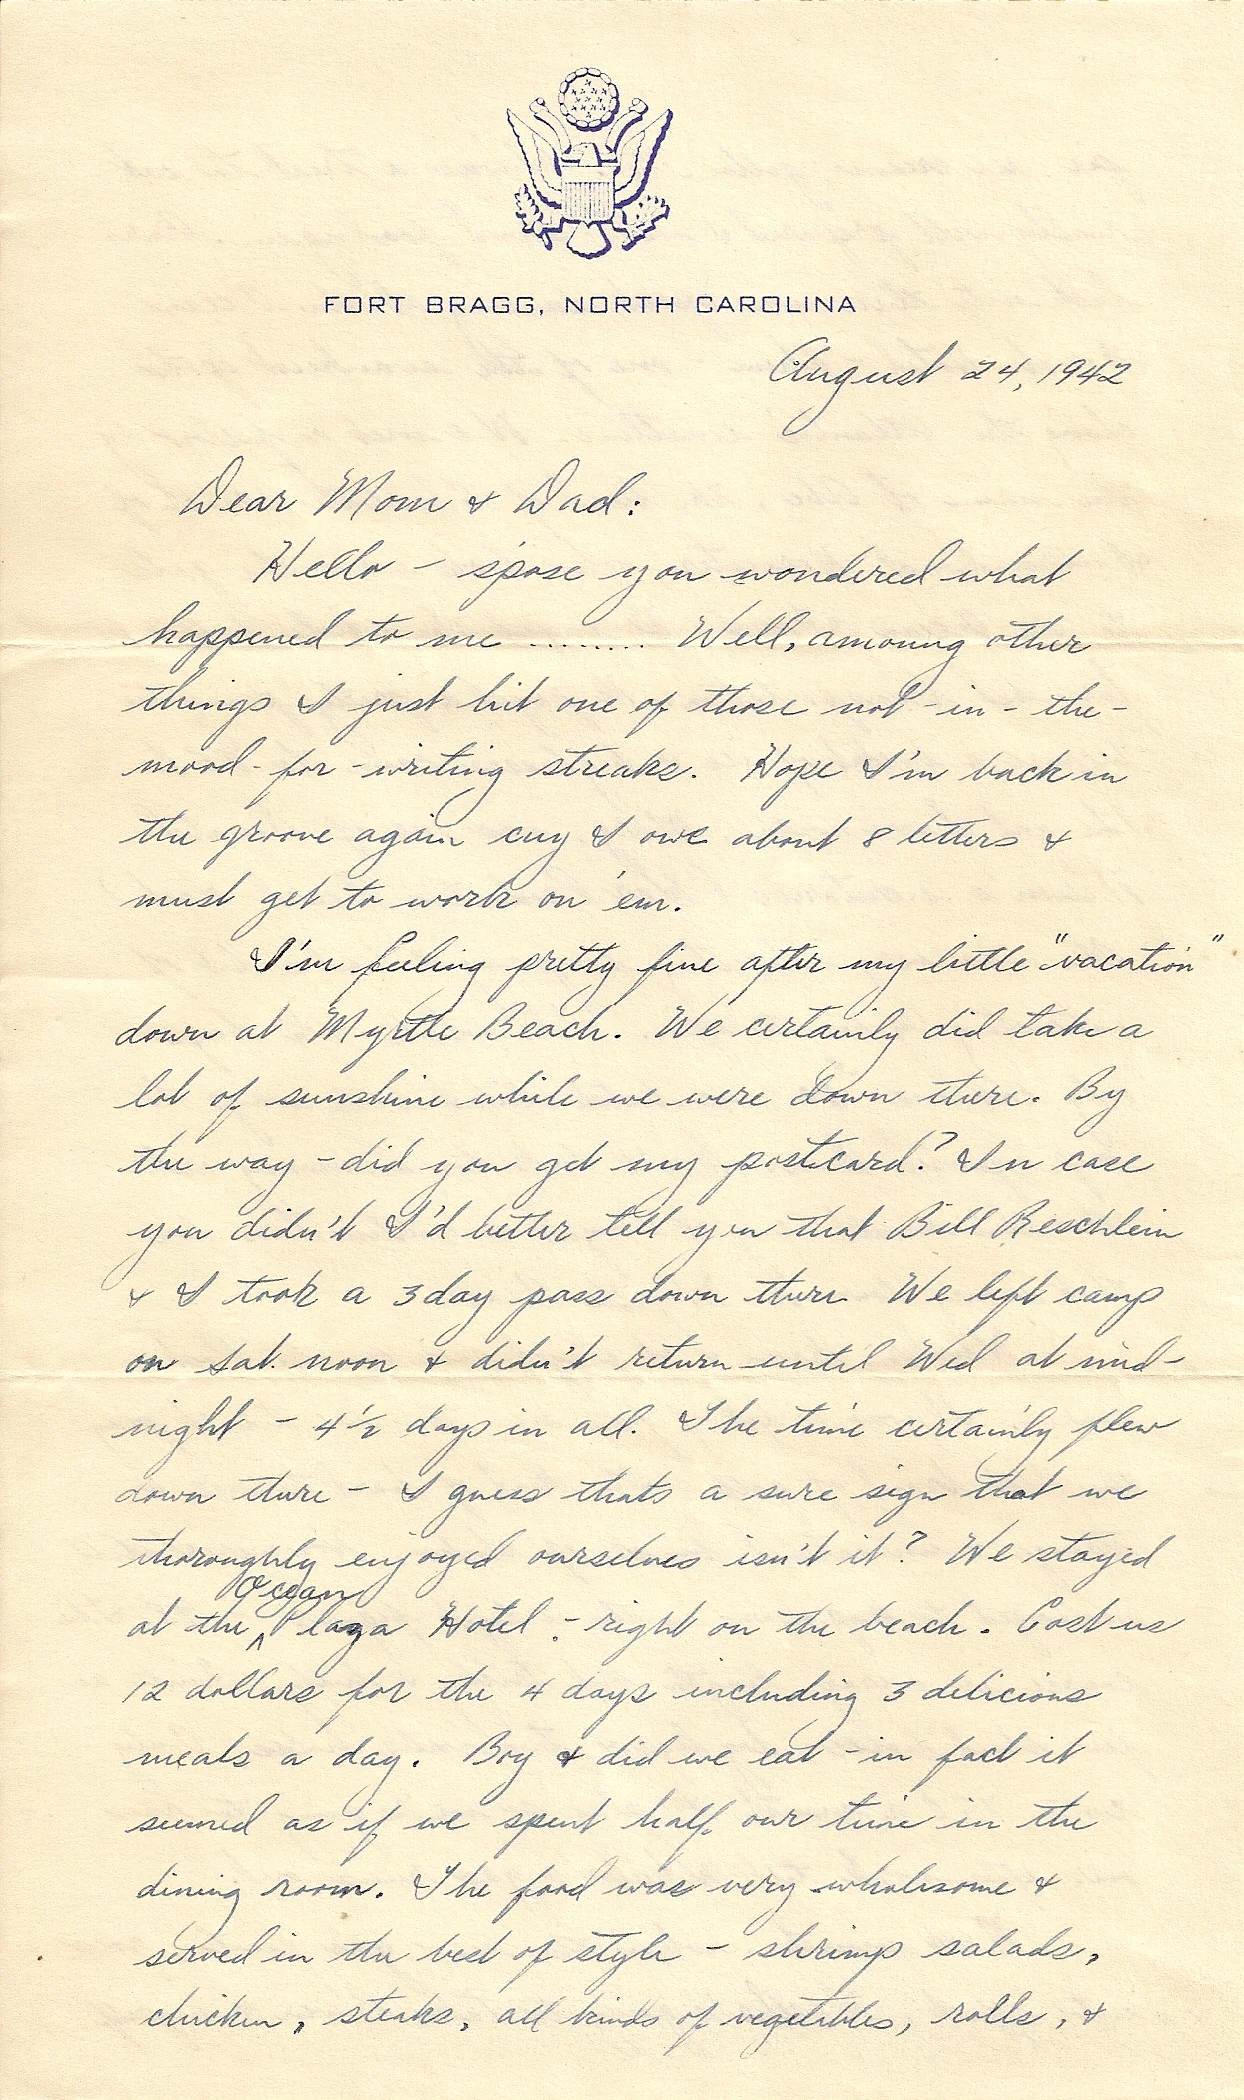 FORT BRAGG, NORTH CAROLINA
August 24, 1942
Dear Mom & Dad:
Hello - s'pose you wondered what
happened to me ........ Well, amoung other
things I just hit one of those not-in-the-
mood-for-writing streaks. Hope I'm back in
the groove again cuz I owe about 8 letters &
must get to work on 'em.
I'm feeling pretty fine after my little "vacation"
down at Myrtle Beach. We certainly did take a
lot of sunshine while we were down there. By
the way - did you get my postcard? In case
you didn't I'd better tell you that Bill Reschlein
& I took a 3 day pass down there We left camp
on Sat. noon & didn't return until Wed at mid-
night - 4 1/2 days in all. The time certainly flew
down there - I guess thats a sure sign that we
thoroughly enjoyed ourselves isn't it? We stayed
at the ^ Ocean Plaza Hotel - right on the beach. Cost us
12 dollars for the 4 days including 3 delicious
meals a day. Boy & did we eat - in fact it
seemed as if we spent half our time in the
dining room. The food was very wholesome &
served in the best of style - shrimp salads,
chicken, steaks, all kinds of vegetables, rolls, &